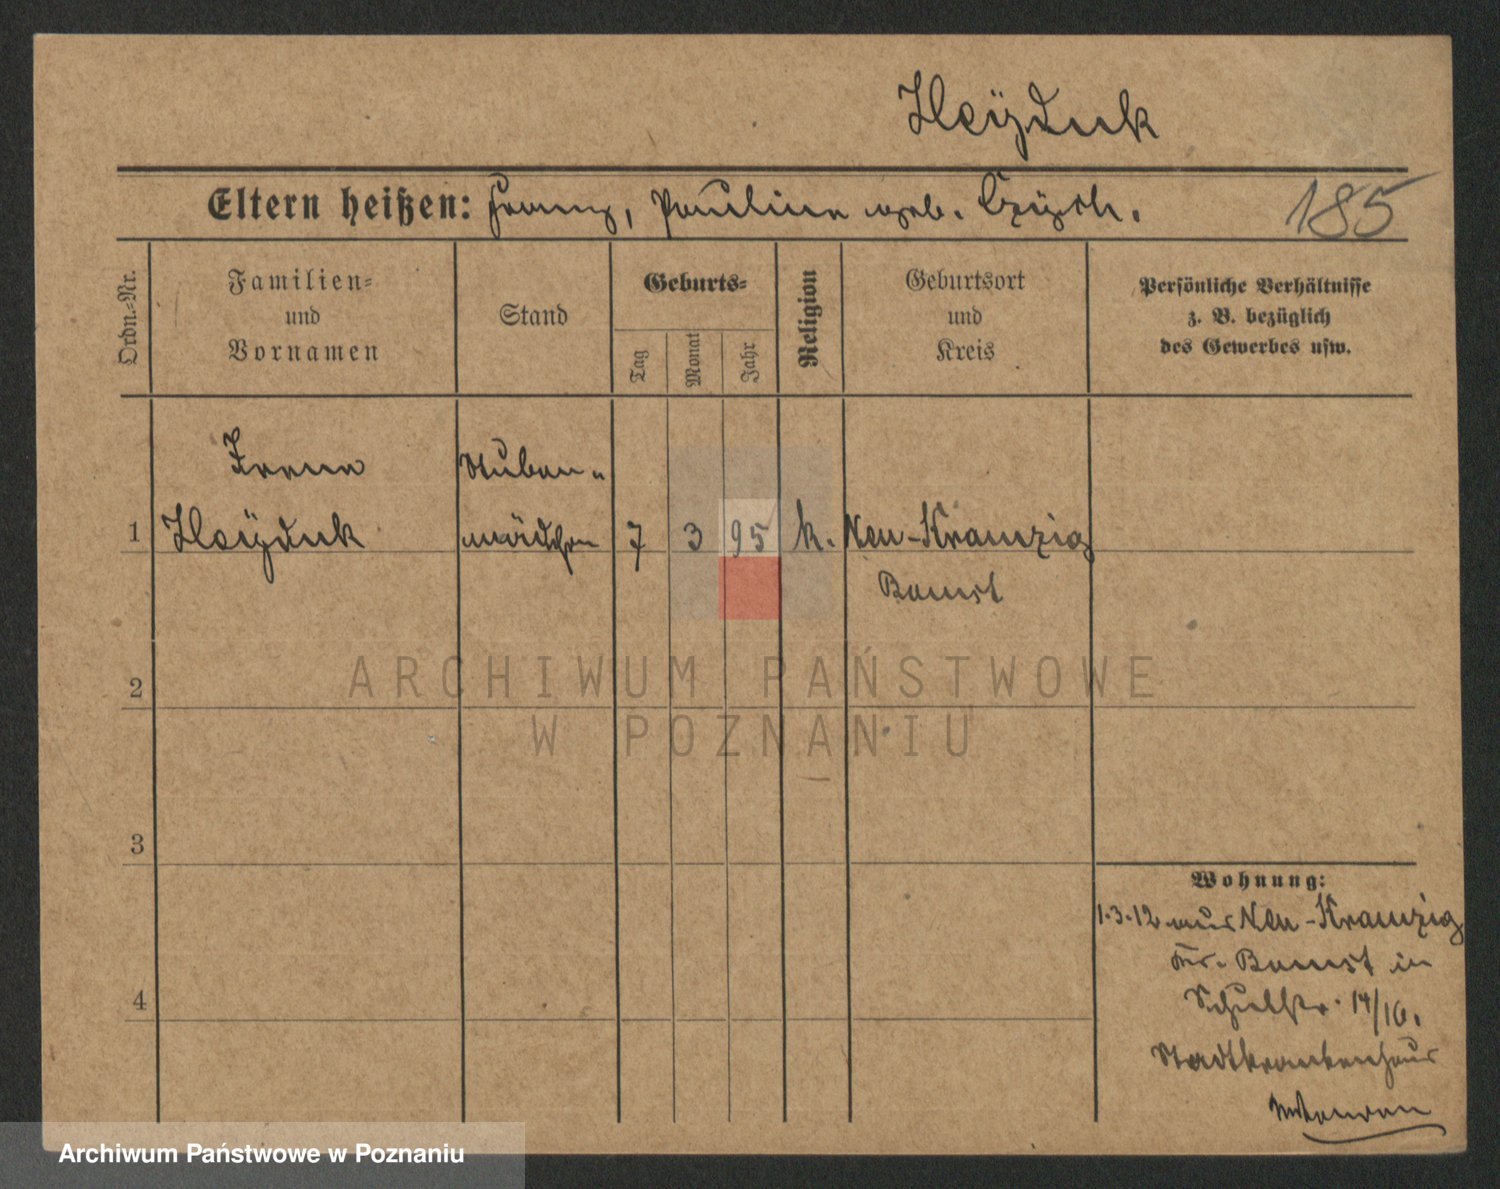 Heÿduk
Eltern heißen: Franz, Pauline geb.
185
Ordn.-Nr.
Familien-
und
Vornamen
Stand
Geburts-
Tag
Monat
Jahr
Religion
Geburtsort
und
Kreis
Persönliche Verhältnisse
z. B. bezüglich
des Gewerbes usw.
Stuben-
1 Heÿduk mädchen 7 3 95 k. Neu-Kramzig
Bomst
2
3
4
Wohnung:
1.3.12 aus Neu-Kramzig
Kr. Bomst in
Schulstr. 14/16.
Stadtkrankenhaus
ARCHIWUM PAŃSTWOWE
W POZNANIU
Archiwum Państwowe w Poznaniu